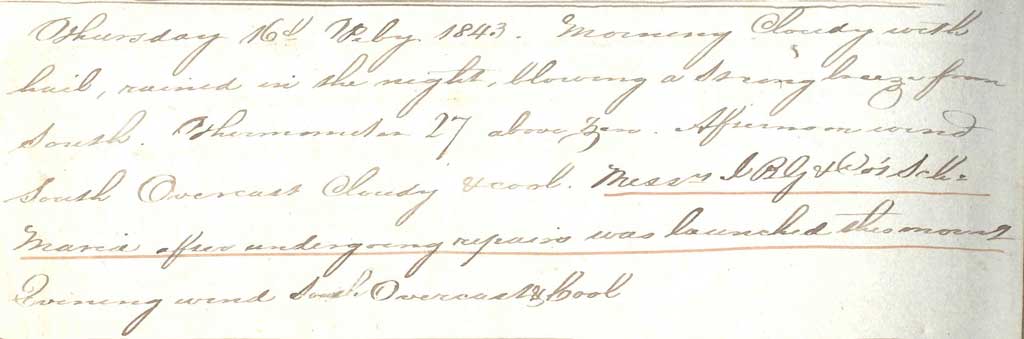 Thursday 16th Feby. 1843. Morning Cloudy with
hail, rained in the night, blowing a strong breeze from
South. Thermometer 27 above Zero. Afternoon wind
South Overcast Cloudy & cool. Messrs I R G & Co's Schr
Maria after undergoing repairs was launched this morng
Evening wind South Overcast & Cool